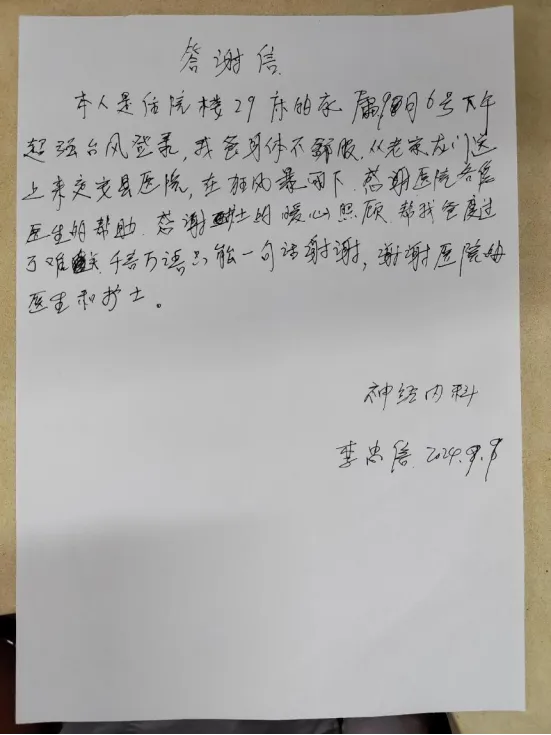 答谢信
本人是住院楼29床的家属,9月6号下午
超强台风登录,我爸身体不舒服,从老家龙门送
上来文县医院,在狂风暴雨下,感谢医院各位
医生的帮助,感谢护士的暖心照顾,帮我爸度过
了难关,千言万语只能一句话谢谢,谢谢医院的
医生和护士。
神经内科
李忠信 2024.9.9